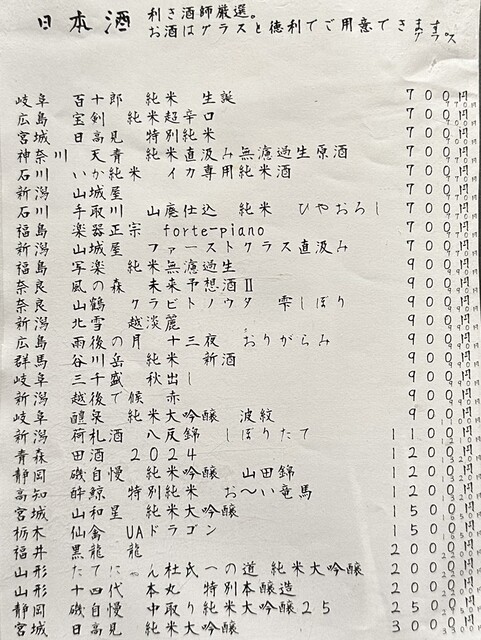 日本酒 利き酒師厳選。
お酒はグラスと徳利でご用意できます。
岐阜 百十郎 純米 生誕 700円
広島 宝剣 純米超辛口 700円
宮城 日高見 特別純米 700円
神奈川 天青 純米直汲み無濾過生原酒 700円
石川 いか純米 イカ専用純米酒 700円
新潟 山城屋 700円
石川 手取川 山廃仕込 純米 ひやおろし 700円
福島 楽器正宗 forte-piano 700円
新潟 山城屋 ファーストクラス直汲み 700円
福島 写楽 純米無濾過生 900円
奈良 風の森 未来予想酒Ⅱ 900円
奈良 山鶴 クラビトノウタ 雫しぼり 900円
新潟 北雪 越淡麗 900円
広島 雨後の月 十三夜 おりがらみ 900円
群馬 谷川岳 純米 新酒 900円
岐阜 三千盛 秋出し 900円
新潟 越後で候 赤 900円
岐阜 醴泉 純米大吟醸 波紋 900円
新潟 荷札酒 八反錦 しぼりたて 1100円
青森 田酒 2024 1200円
静岡 磯自慢 純米吟醸 山田錦 1200円
高知 酔鯨 特別純米 お〜い竜馬 1200円
宮城 山和 純米大吟醸 1500円
栃木 仙禽 UAドラゴン 1500円
福井 黒龍 龍 2000円
山形 杜氏への道 純米大吟醸 2000円
山形 十四代 本丸 特別本醸造 2000円
静岡 磯自慢 中取り純米大吟醸25 2500円
宮城 日高見 純米大吟醸 3000円